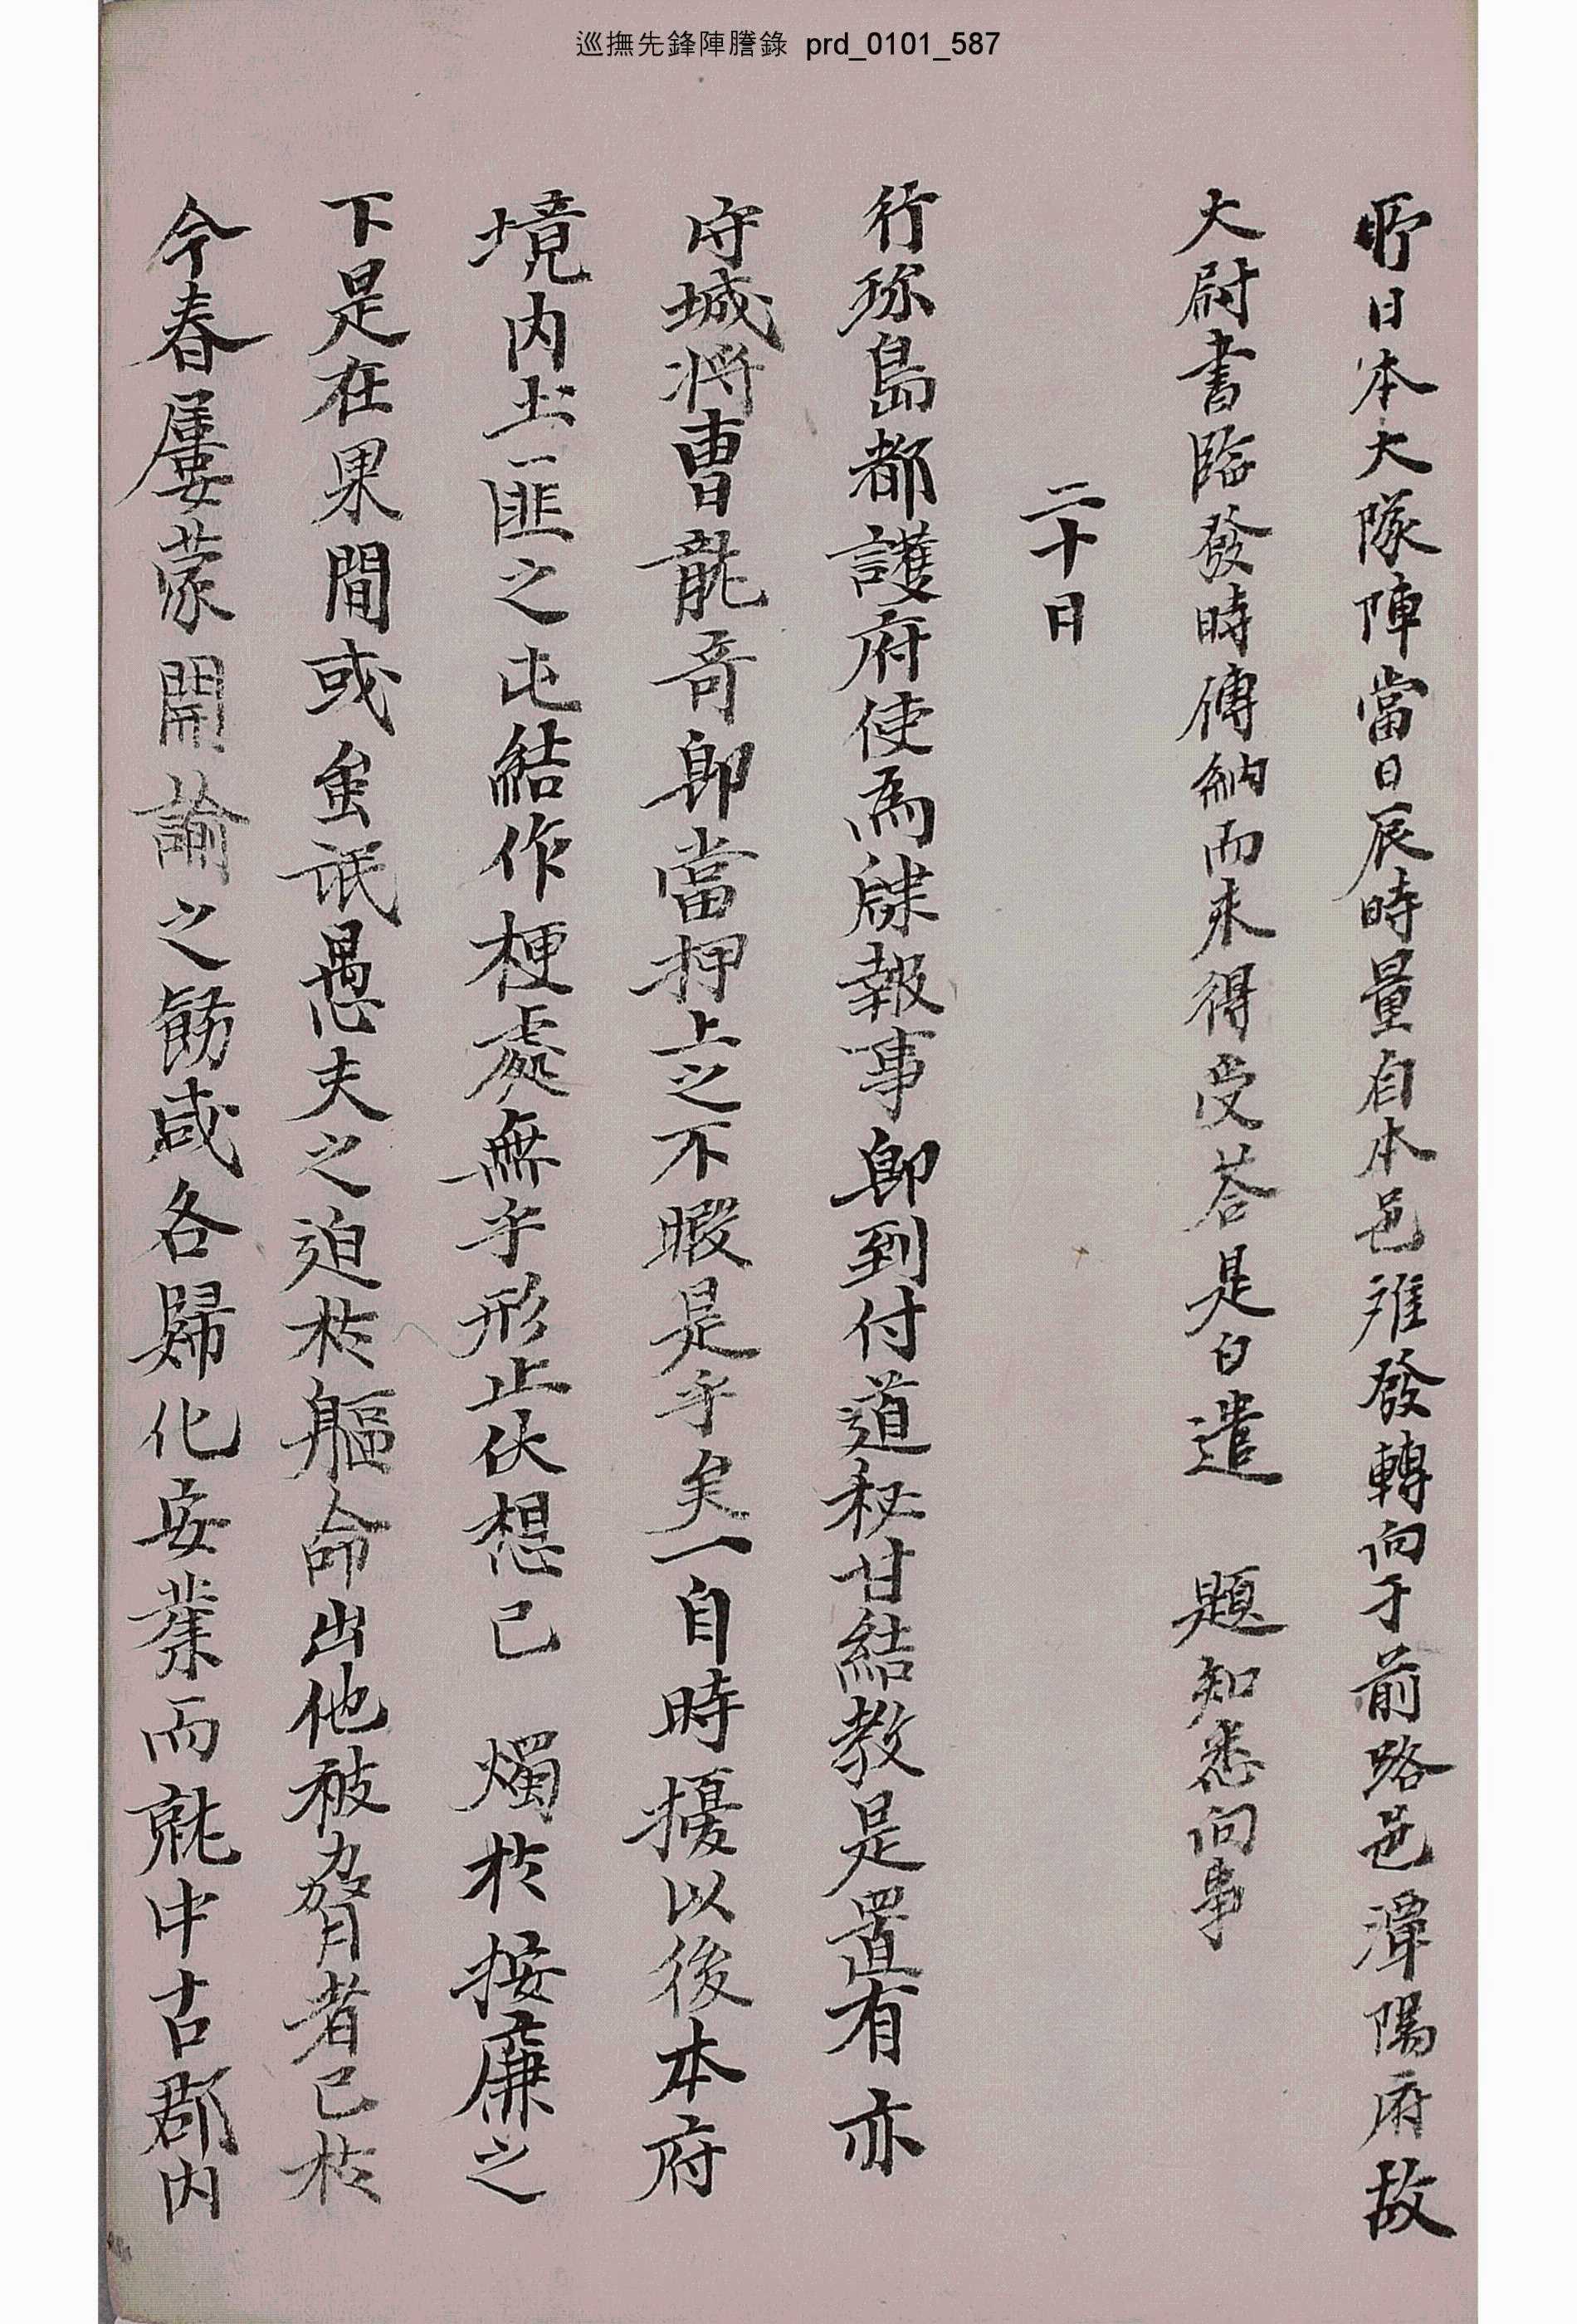 巡撫先鋒陣謄錄 prd_0101_587
所日本大隊陣當日辰時量自本邑離發轉向于前路邑潭陽府故
大尉書臨發時傳納而未得受答是白遣 題知悉向事
二十日
行珎島都護府使爲牒報事卽到付道秘甘結敎是置有亦
守城將曺龍奇卽當押上之不暇是乎矣一自時擾以後本府
境內土匪之屯結作梗處無乎形止伏想已 燭於按廉之
下是在果間或蚩氓愚夫之迫於軀命出他被脅者已於
今春屢蒙開諭之飭咸各歸化安業而就中古郡內